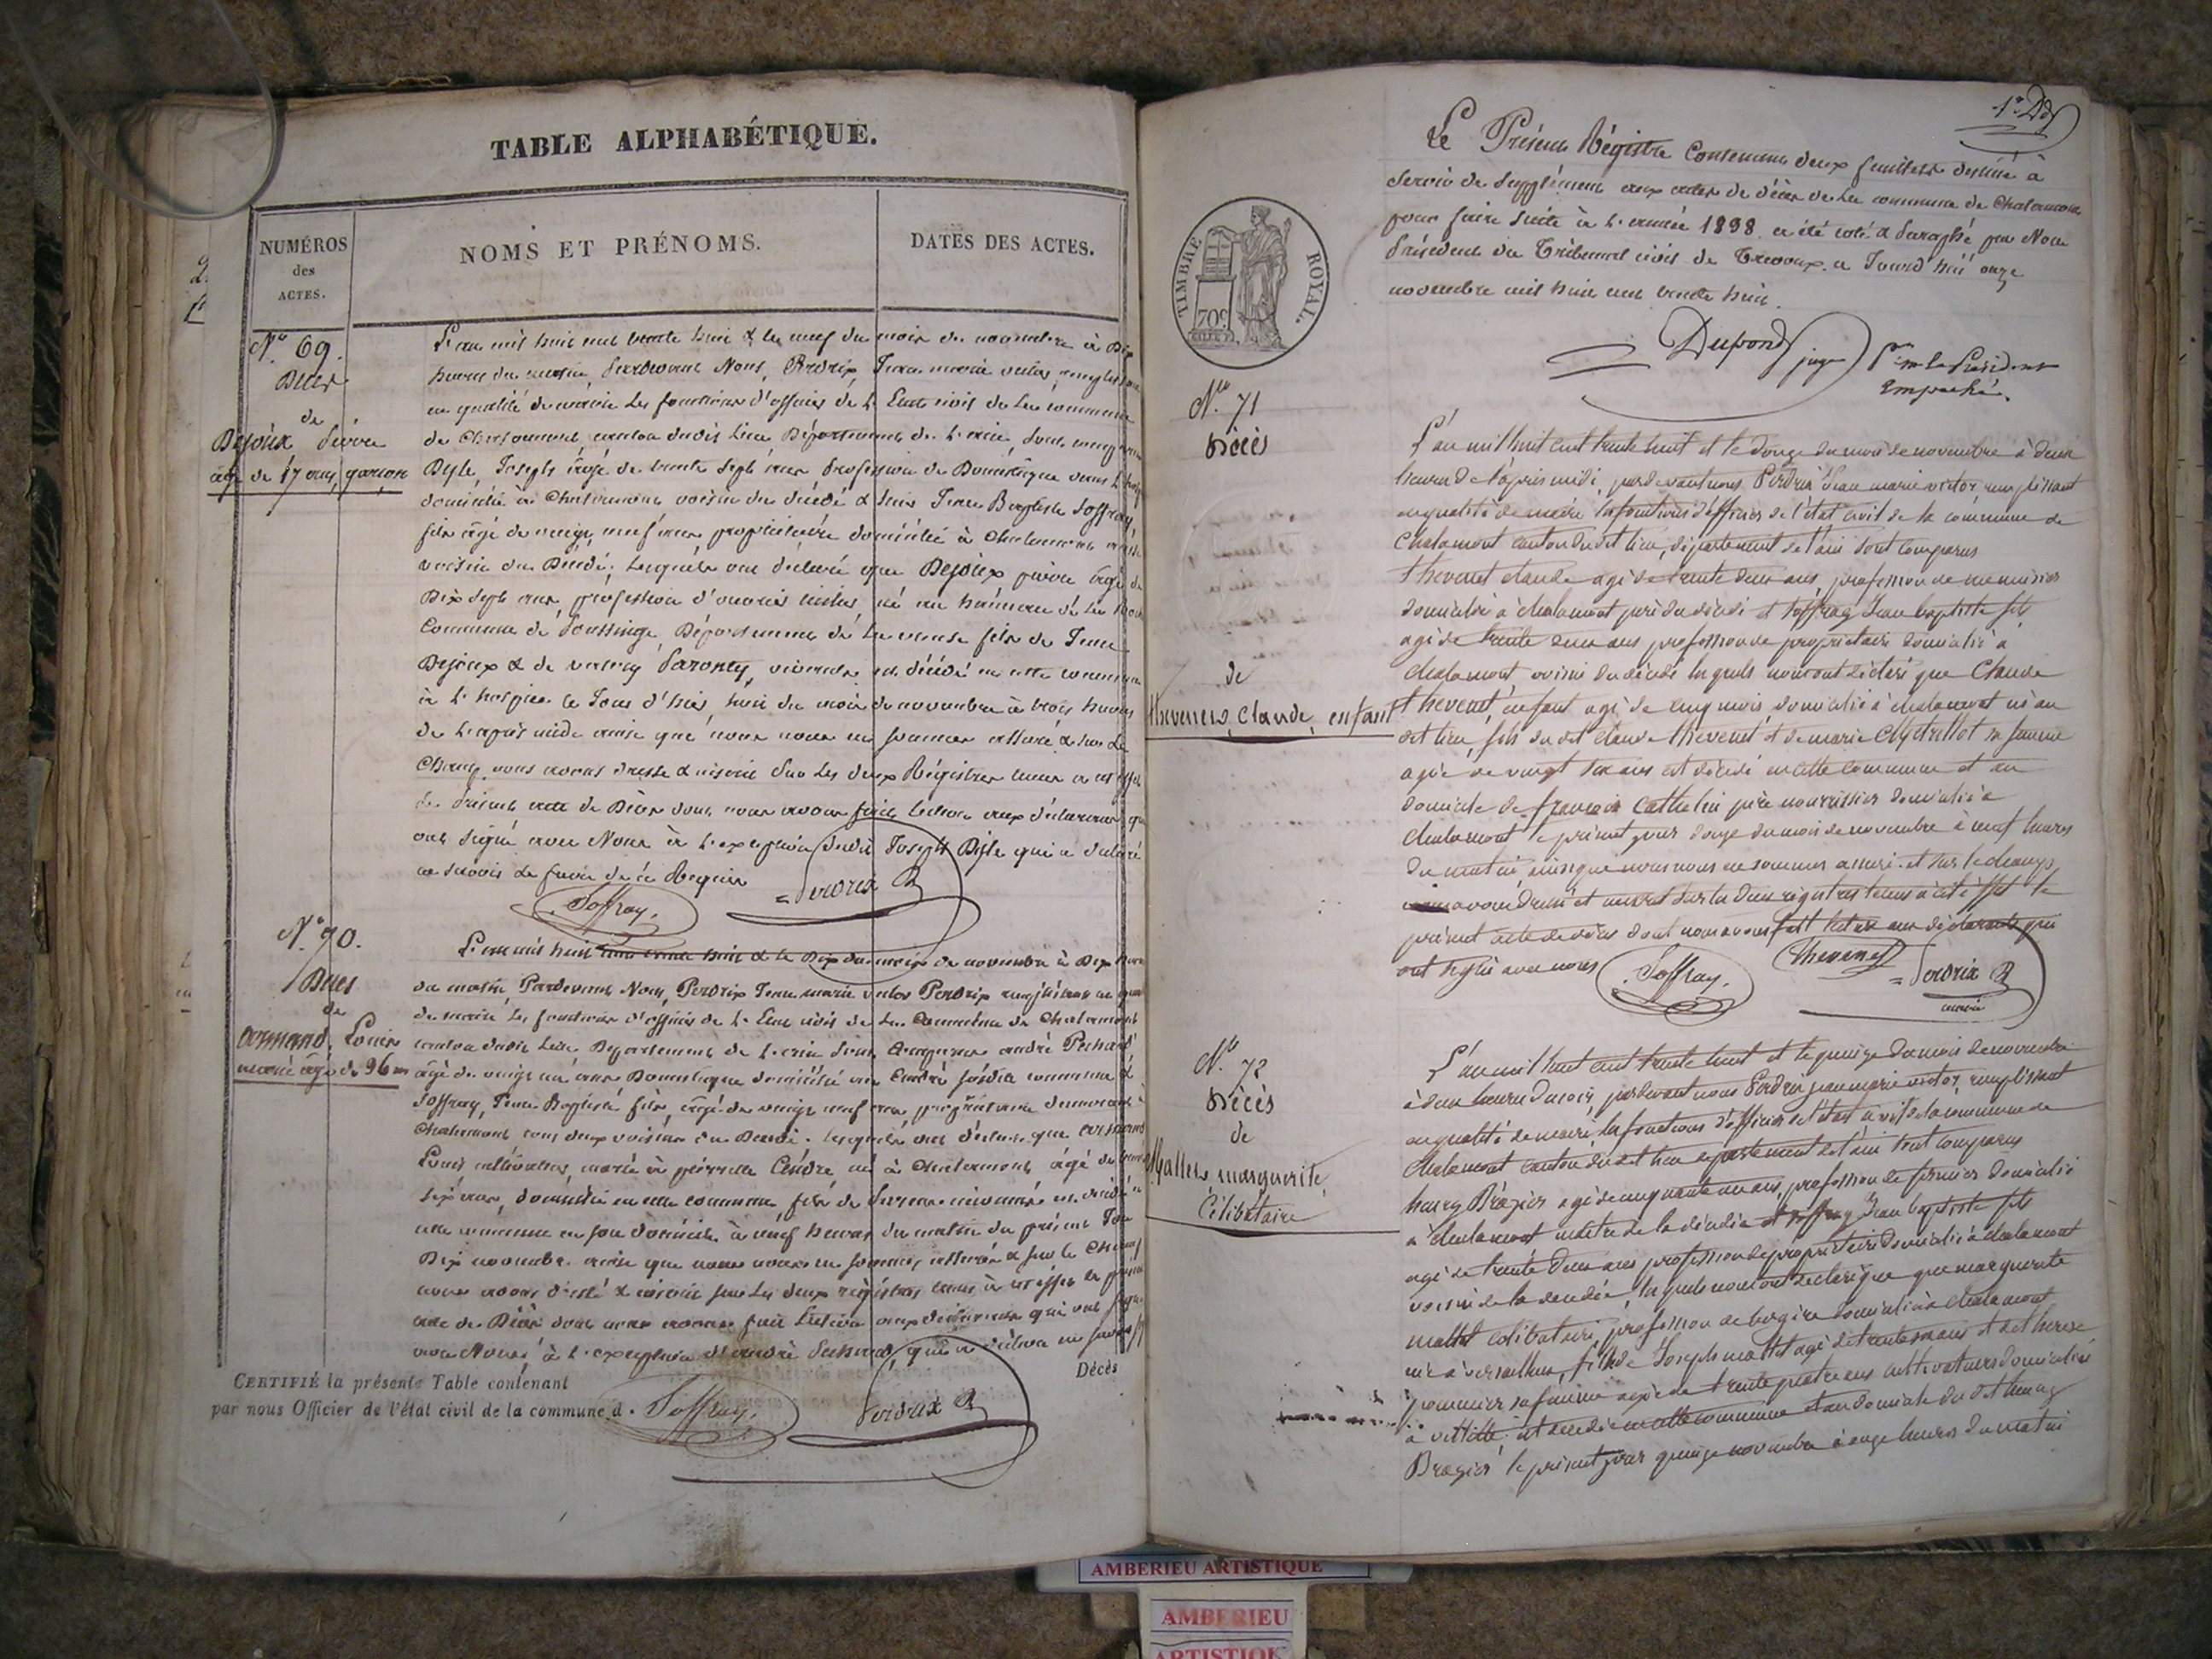 TABLE ALPHABÉTIQUE.
NUMÉROS
des
ACTES.
NOMS ET PRÉNOMS.
DATES DES ACTES.
N° 69.
Décès
de
Dejoux Pierre
âgé de 17 ans, garçon
L'an mil huit cent trente huit & le neuf du mois de novembre à Dix
heures du matin, Pardevant Nous, Perdrix, Jean marie victor, remplissant
en qualité de maire les fonctions d'officier de l'Etat civil de la commune
de Chalamont, canton dudit lieu, Département de l'ain, sont comparus
Joseph âgé de trente sept ans profession de Domestique
domicilié à Chalamont voisin du décédé & Jean Baptiste Soffray,
fils âgé de vingt neuf ans propriétaire domicilié à Chalamont
voisin du Décédé; lesquels ont déclaré que Dejoux pierre âgé de
Dix sept ans, profession d'ouvrier né au hameau de la
Commune de Département de la creuse fils de
Dejoux & de est décédé en cette commune
à l'hospice le Jour d'hier, huit du mois de novembre à trois heures
de l'après midi ainsi que nous nous en sommes assuré & sur le
Champ nous avons dressé & inscrit sur les deux Régistres tenus à cet effet
le présent acte de Décès dont nous avons fait lecture aux déclarants qui
ont signé avec Nous à l'exception dudit Joseph qui a déclaré
ne savoir le faire de ce Requis
Soffray.
Perdrix
N° 70.
Décès
de
armand, Louis
marié âgé de 36 ans
L'an mil huit cent trente huit & le Dix du mois de novembre à Dix heures
du matin Pardevant Nous, Perdrix Jean marie victor Perdrix remplissant en qualité
de maire les fonctions d'officier de l'Etat civil de la Commune de Chalamont
canton dudit lieu Département de l'ain sont Comparus andré
âgé de vingt un ans Domestique domicilié commune &
Soffray, Jean Baptiste fils, âgé de vingt neuf ans, propriétaire demeurant à
Chalamont tous deux voisins du Décédé. lesquels ont déclaré que armand
Louis cultivateur, marié à pierrette né à Chalamont âgé de trente
six ans, domicilié en cette commune, fils de est décédé en
cette commune en son domicile à neuf heures du matin du présent Jour
Dix novembre ainsi que nous nous en sommes assuré & sur le Champ
nous avons dressé & inscrit sur les deux régistres tenus à cet effet le présent
acte de Décès dont nous avons fait Lecture aux déclarants qui ont signé
avec Nous à l'exception d'andré qui a déclaré ne savoir
Décès
CERTIFIÉ la présente Table contenant
par nous Officier de l'état civil de la commune d
Soffray.
Perdrix
Le Présent Régistre Contenant deux feuillets destiné à
Servir de Supplément aux actes de décès de la commune de Chalamont
pour faire suite à l'année 1838 a été coté & Paraphé par Nous
Président du Tribunal civil de Trevoux ce Jourd'hui onze
novembre mil huit cent trente huit.
Dupond juge
Pr m. le Président
Empeché.
TIMBRE ROYAL.
70c
N° 71
Décès
de
thevenet, Claude, enfant
L'an mil huit cent trente huit et le douze du mois de novembre à deux
heures de l'après midi, pardevant nous Perdrix Jean marie victor remplissant
en qualité de maire les fonctions d'officier de l'état civil de la commune de
Chalamont canton du dit lieu, département de l'ain sont comparus
thevenet claude agé de trente deux ans, profession de menuisier
domicilié à chalamont père du décédé et Soffray Jean baptiste fils
agé de trente deux ans profession de propriétaire domicilié à
chalamont voisin du décédé lesquels nous ont déclaré que Claude
thevenet, enfant agé de cinq mois, domicilié à chalamont né au
dit lieu, fils du dit claude thevenet et de marie sa femme
agée de vingt six ans est décédé en cette commune et au
domicile de françois Cathelin père nourrissier domicilié à
chalamont le présent jour douze du mois de novembre à neuf heures
du matin, ainsi que nous nous en sommes assuré. et sur le champs
nous avons dressé et inscrit sur les deux registres tenus à cet effet le
présent acte de décès dont nous avons fait lecture aux déclarants qui
ont signé avec nous
Soffray.
Thevenet
Perdrix
maire
N° 72
Décès
de
Mallet, marguerite,
Célibataire
L'an mil huit cent trente huit et le quinze du mois de novembre
à deux heures du soir, pardevant nous Perdrix jean marie victor, remplissant
en qualité de maire, les fonctions d'officier de l'état civil de la commune de
Chalamont canton du dit lieu département de l'ain sont comparus
Brazier agé de cinquante un ans, profession de fermier domicilié
à Chalamont maître de la décédée et Soffray Jean baptiste fils
agé de trente deux ans profession de propriétaire domicilié à chalamont
voisin de la décédée, lesquels nous ont déclaré que marguerite
mallet célibataire, profession de bergère domiciliée à chalamont
née à versailleux, fille de Joseph mallet agé de trente ans et de therese
pommier sa femme agée de trente quatre ans cultivateurs domiciliés
à est décédée en cette commune et au domicile du dit
Brazier le présent jour quinze novembre à onze heures du matin
AMBERIEU ARTISTIQUE
AMBERIEU
ARTISTIQUE